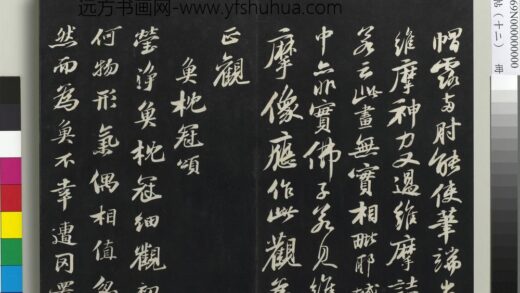 远方书画网-www.yfshuhua.com
帽露兩肘能使筆端出
維摩神力又過維摩詰
若云此畫無實相毗耶城
中亦非實佛子若見維
摩像應作此觀為
正觀
魚枕冠頌
瑩淨魚枕冠細觀初
何物形氣偶相值忽
然而為魚不幸遭罔罟
69N000000000
帖(十二)